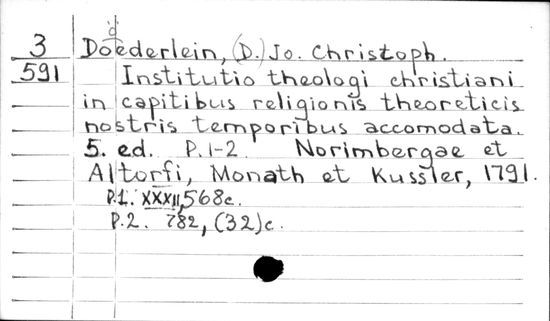 3
591
d
Doederlein, (D.) Jo. Christoph.
Institutio theologi christiani
in capitibus religionis theoreticis
nostris temporibus accomodata.
5. ed. P.1-2. Norimbergae et
Altorfi, Monath et Kussler, 1791.
P.1. XXXII, 568c.
P.2. 782, (32)c.